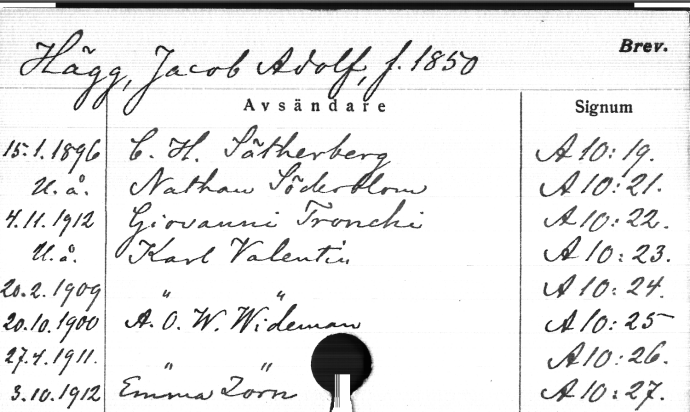 Brev.
Hägg, Jacob Adolf, f. 1850
Avsändare Signum
15.1.1896 C. H. Sätherberg A 10:19.
U.å. Nathan Söderblom A 10:21.
4.11.1912 Giovanni Tronchi A 10:22.
U.å. Karl Valentin A 10:23.
20.2.1909 " " A 10:24.
20.10.1900 A. O. W. Wideman A 10:25
27.4.1911. " " A 10:26.
3.10.1912 Emma Zorn A 10:27.